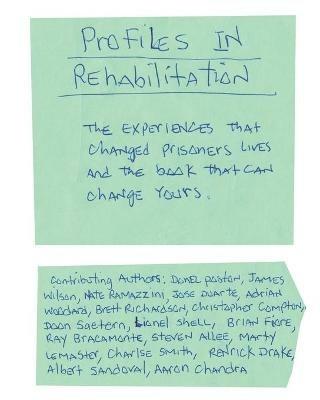 Profiles in
Rehabilitation
The experiences that
changed prisoners lives
and the book that can
change yours.
Contributing Authors: Donel Poston, James
Wilson, Nate Ramazzini, Jose Duarte, Adrian
Woodard, Brett Richardson, Christopher Compton,
Doan Saetern, Lionel Shell, Brian Fiore,
Ray Bracamonte, Steven Allee, Marty
Lemaster, Charlse Smith, Redrick Drake,
Albert Sandoval, Aaron Chandra